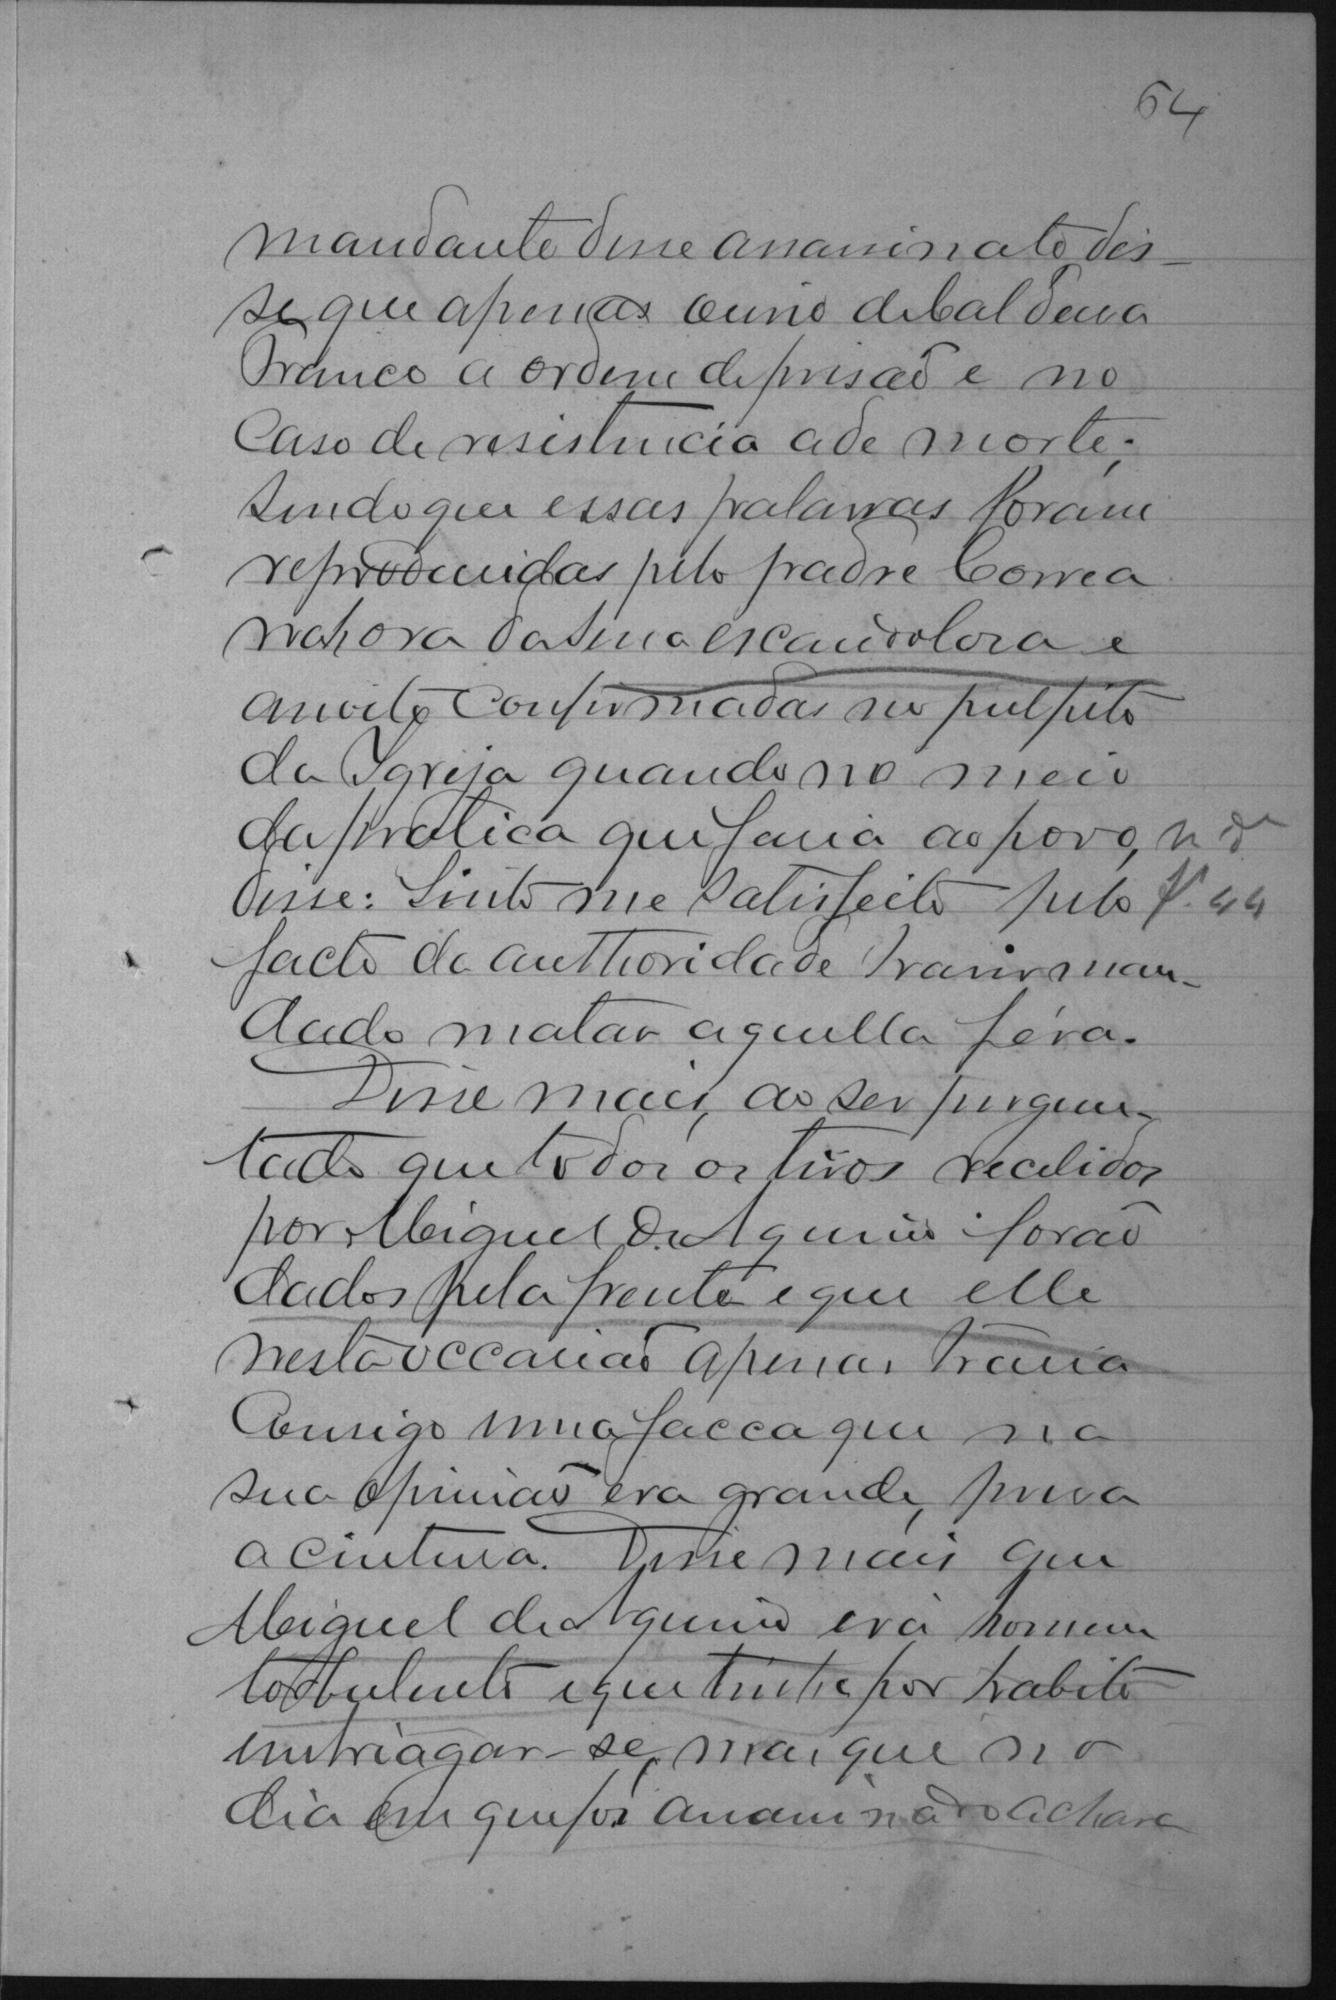 64
mandante desse assassinato dis-
se que apenas ouvio de Caldeira
Franco a ordem de prisão e no
caso de resistencia a de morte;
sendo que essas palavras foram
reproduzidas pelo padre Correa
na hora da sua escandolosa e
a noite confirmadas no pulpito
da Igreja quando no meio
da pratica que fasia ao povo,
disse: Sinto me satisfeito pelo f. 44
facto da authoridade haver man-
dado matar aquella féra.
Disse mais, ao ser pergun-
tado que todos os tiros recebidos
por Miguel de Aquino forão
dados pela frente e que elle
nesta occasião apenas trasia
consigo uma facca que na
sua opinião era grande, presa
a cintura. Disse mais que
Miguel de Aquino era homem
torbulento e que tinha por habito
embriagar-se, mas que no
dia em que foi assassinado achava